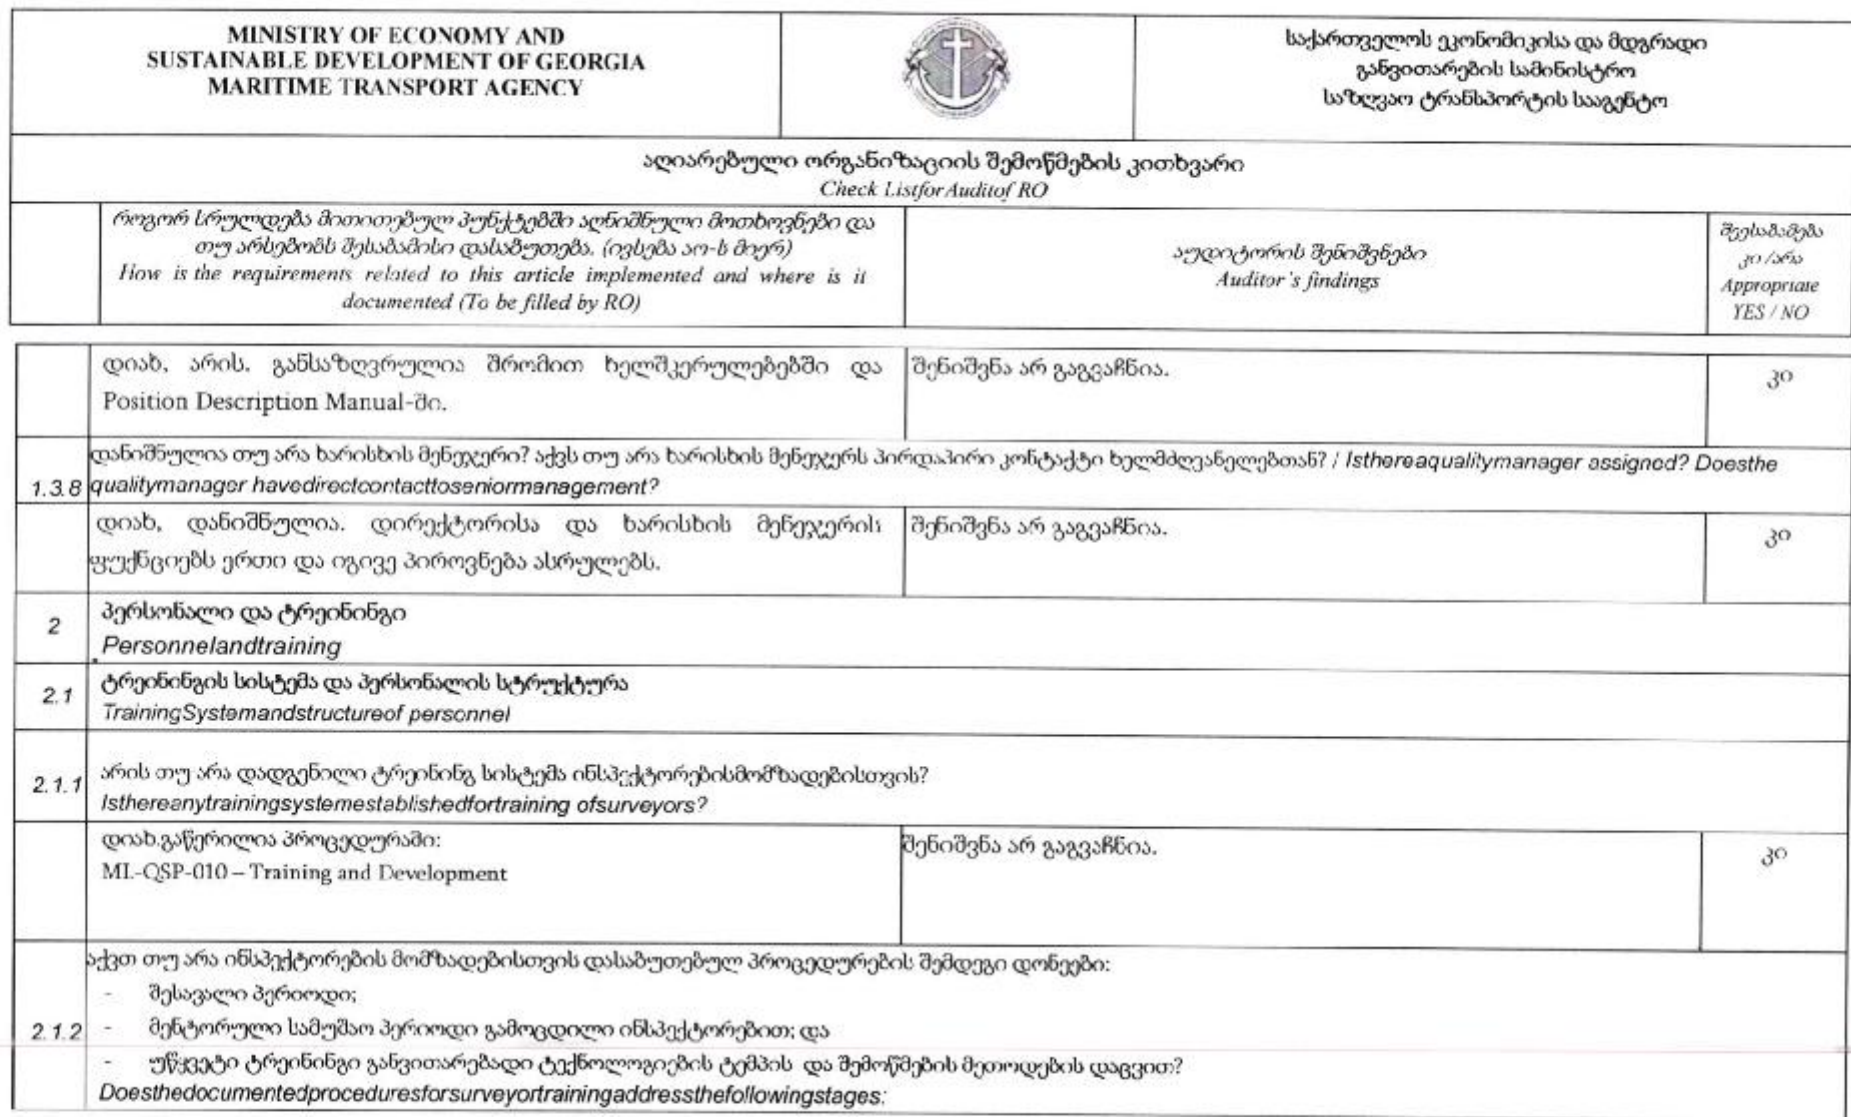 MINISTRY OF ECONOMY AND
SUSTAINABLE DEVELOPMENT OF GEORGIA
MARITIME TRANSPORT AGENCY
საქართველოს ეკონომიკისა და მდგრადი
განვითარების სამინისტრო
საზღვაო ტრანსპორტის სააგენტო
აღიარებული ორგანიზაციის შემოწმების კითხვარი
Check ListforAuditof RO
როგორ სრულდება მითითებულ პუნქტებში აღნიშნული მოთხოვნები და
თუ არსებობს შესაბამისი დასაბუთება. (ივსება აო-ს მიერ)
How is the requirements related to this article implemented and where is it
documented (To be filled by RO)
აუდიტორის შენიშვნები
Auditor's findings
შეესაბამება
კი /არა
Appropriate
YES / NO
დიახ, არის. განსაზღვრულია შრომით ხელშკერულებებში და
Position Description Manual-ში.
შენიშვნა არ გაგვაჩნია.
კი
დანიშნულია თუ არა ხარისხის მენეჯერი? აქვს თუ არა ხარისხის მენეჯერს პირდაპირი კონტაქტი ხელმძღვანელებთან? / Isthereaqualitymanager assigned? Doesthe
1.3.8 qualitymanager havedirectcontacttoseniormanagement?
დიახ, დანიშნულია. დირექტორისა და ხარისხის მენეჯერის
ფუქნციებს ერთი და იგივე პიროვნება ასრულებს.
შენიშვნა არ გაგვაჩნია.
კი
2 პერსონალი და ტრეინინგი
Personnelandtraining
2.1 ტრეინინგის სისტემა და პერსონალის სტრუქტურა
TrainingSystemandstructureof personnel
2.1.1 არის თუ არა დადგენილი ტრეინინგ სისტემა ინსპექტორებისმომზადებისთვის?
Isthereanytrainingsystemestablishedfortraining ofsurveyors?
დიახ.გაწერილია პროცედურაში:
ML-QSP-010 – Training and Development
შენიშვნა არ გაგვაჩნია.
კი
აქვთ თუ არა ინსპექტორების მომზადებისთვის დასაბუთებულ პროცედურების შემდეგი დონეები:
- შესავალი პერიოდი;
2.1.2 - მენტორული სამუშაო პერიოდი გამოცდილი ინსპექტორებით; და
- უწყვეტი ტრეინინგი განვითარებადი ტექნოლოგიების ტემპის და შემოწმების მეთოდების დაცვით?
Doesthedocumentedproceduresforsurveyortrainingaddressthefollowingstages: